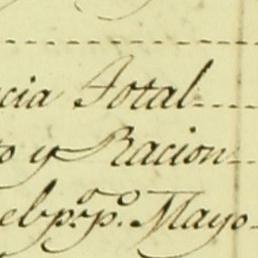 cia Total
o y Racion
el p.r p.o Mayo